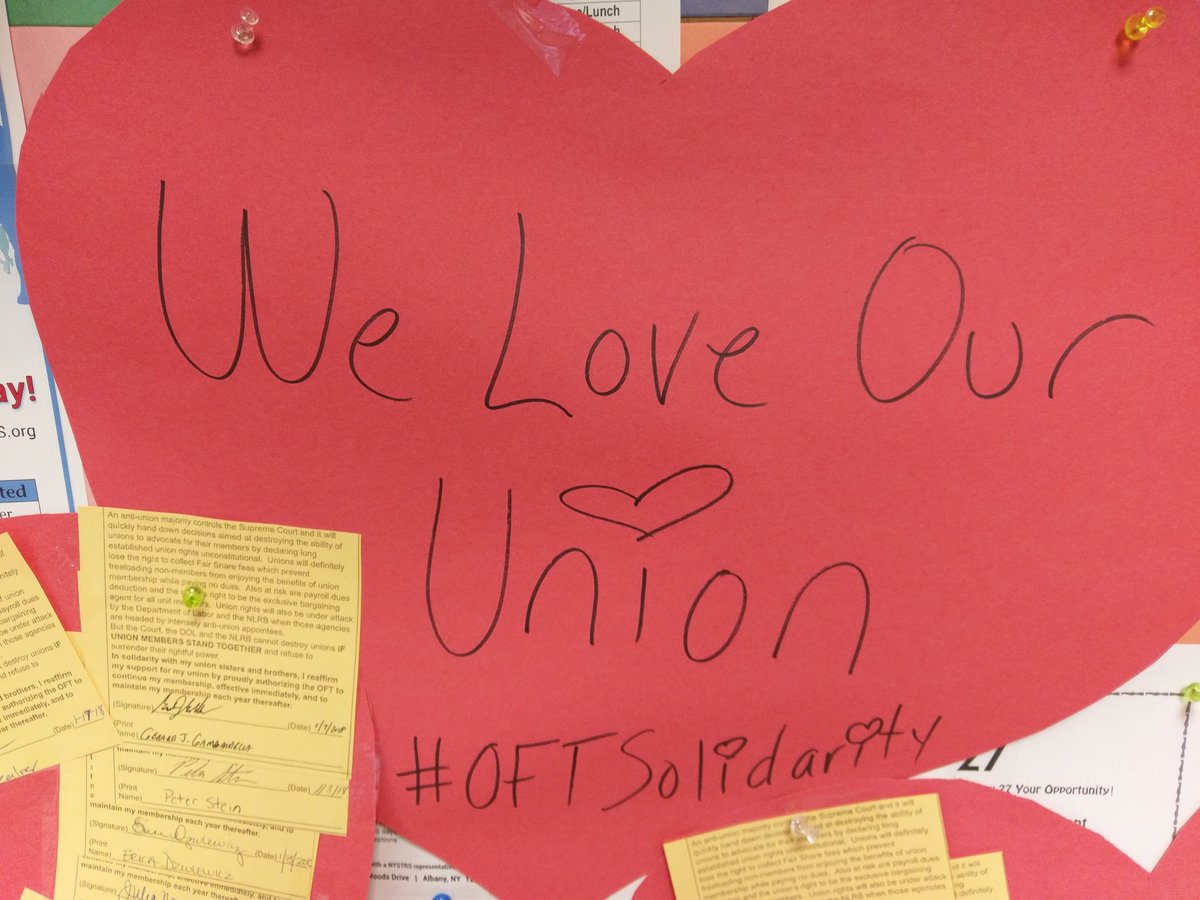 We Love Our
Union
#OFTSolidarity
e/Lunch
ay!
S.org
ted
An anti-union majority controls the Supreme Court and it will
quickly hand down decisions aimed at destroying the ability of
unions to advocate for their members by declaring long
established union rights unconstitutional. Unions will definitely
lose the right to collect Fair Share fees which prevent
freeloading non-members from enjoying the benefits of union
membership while paying no dues. Also at risk are payroll dues
deduction and the right to be the exclusive bargaining
agent for all unit members. Union rights will also be under attack
by the Department of Labor and the NLRB when those agencies
are headed by intensely anti-union appointees.
But the Court, the DOL and the NLRB cannot destroy unions IF
UNION MEMBERS STAND TOGETHER and refuse to
surrender their rightful power.
In solidarity with my union sisters and brothers, I reaffirm
my support for my union by proudly authorizing the OFT to
continue my membership, effective immediately, and to
maintain my membership each year thereafter.
(Signature) (Date)
(Print
Name) Gerard J.
(Signature) (Date)
(Print
Name) Peter Stein
maintain my membership each year thereafter.
(Signature) (Date)
(Print
Name) ERICA
maintain my membership each year thereafter.
(Signature) Julia
brothers, I reaffirm
authorizing the OFT to
immediately, and to
(Date) 1-17-18
27
27 Your Opportunity!
with a NYSTRS representative
Woods Drive | Albany, NY
An anti-union majority Supreme Court and it will
quickly hand down decisions aimed at destroying the ability of
unions to advocate for their members by declaring long
established union rights unconstitutional. Unions will definitely
lose the right to collect Fair Share fees which prevent
freeloading non-members from enjoying the benefits of union
membership while paying no dues. Also at risk are payroll dues